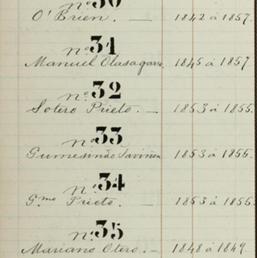 O'Brien. — 1842 á 1857.
nº 31
Manuel Olasagarre 1845 á 1857
nº 32
Sotero Prieto. — 1853 á 1855.
nº 33
Gumesindo 1853 á 1856.
nº 34
Gmo Prieto. — 1853 á 1856.
nº 35
Mariano Otero. — 1848 á 1849.